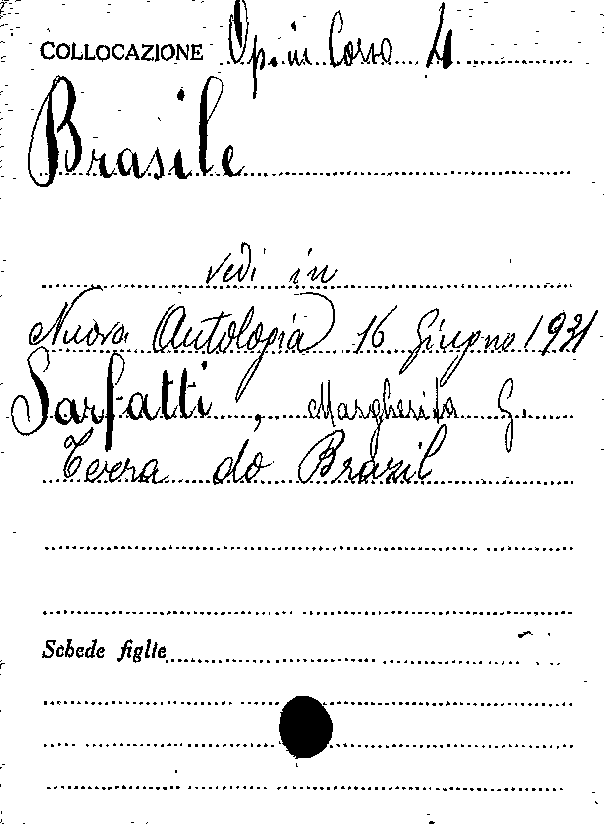 COLLOCAZIONE Op. in Corso 4
Brasile
vedi in
Nuova Antologia 16 Giugno 1931
Sarfatti, Margherita G.
Terra do Brazil
Schede figlie